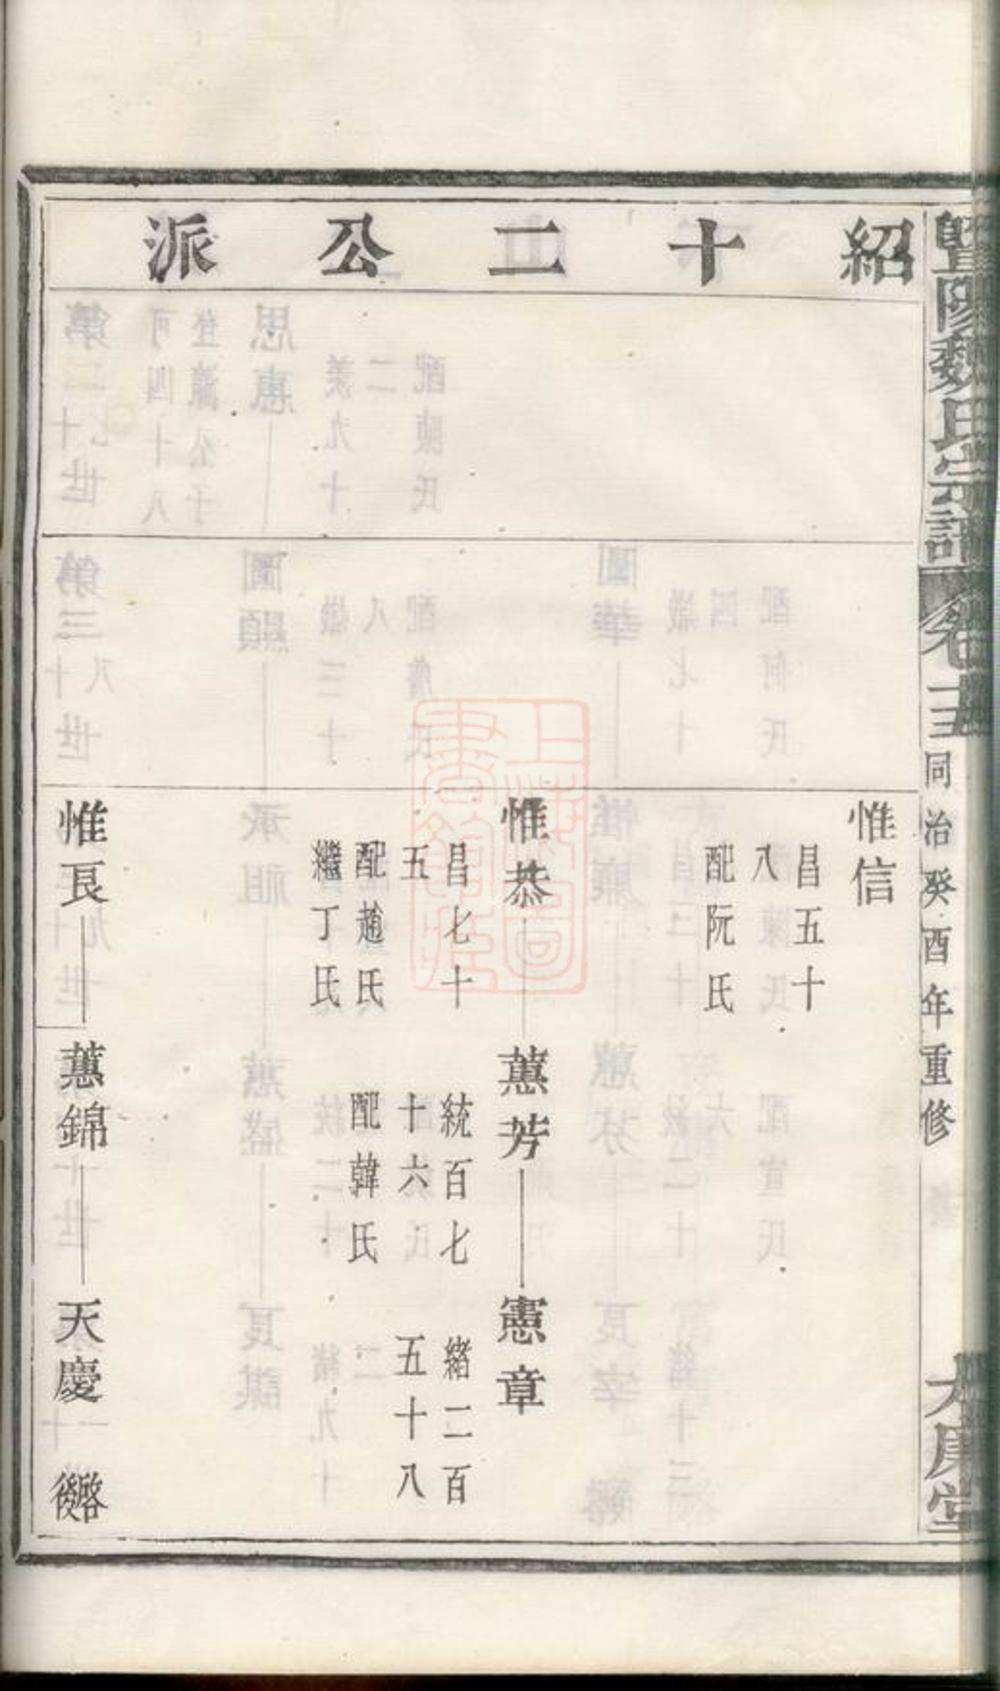 暨陽魏氏宗譜
同治癸酉年重修
紹十二公派
惟信
昌五十
八
配阮氏
惟恭
昌七十
五
配趙氏
繼丁氏
蕙芳
統百七
十六
配韓氏
憲章
緒二百
五十八
惟良
蕙錦
天慶
啓後
上海圖書館藏